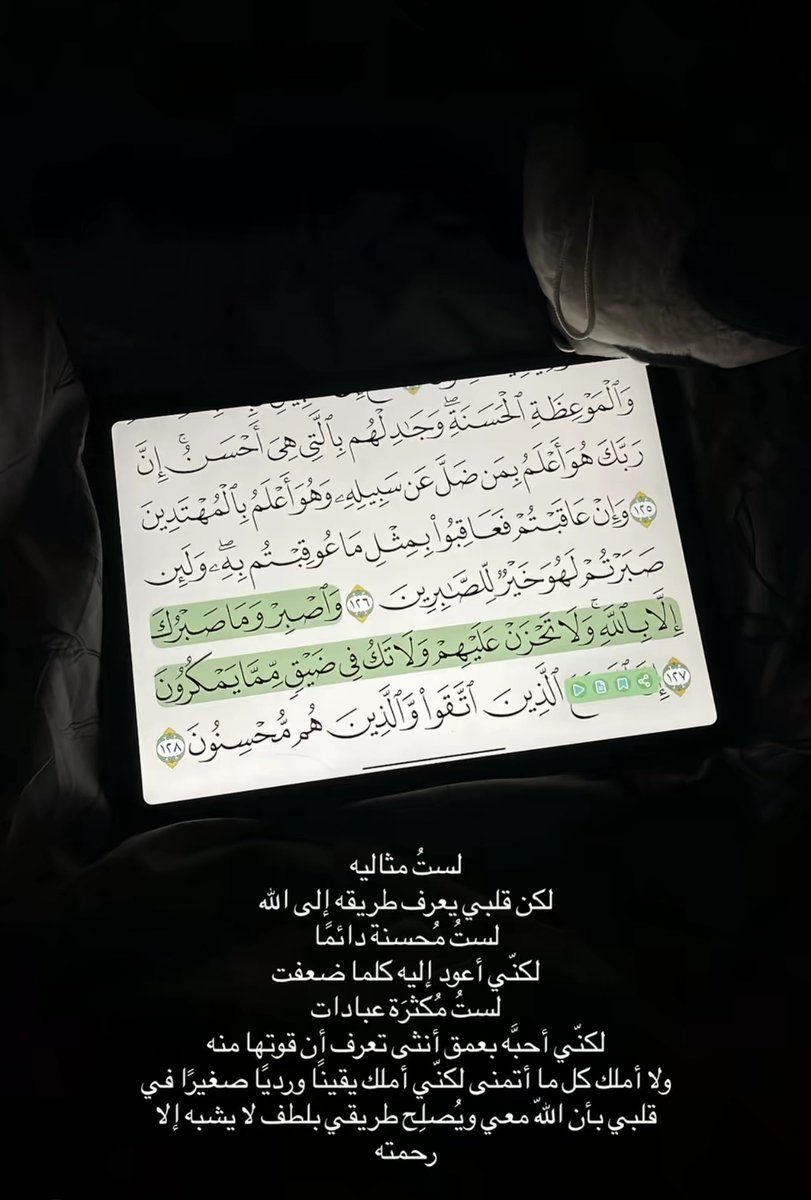 وَٱلْمَوْعِظَةِ ٱلْحَسَنَةِ ۖ وَجَٰدِلْهُم بِٱلَّتِى هِىَ أَحْسَنُ ۚ إِنَّ
رَبَّكَ هُوَ أَعْلَمُ بِمَن ضَلَّ عَن سَبِيلِهِۦ وَهُوَ أَعْلَمُ بِٱلْمُهْتَدِينَ
١٢٥ وَإِنْ عَاقَبْتُمْ فَعَاقِبُوا۟ بِمِثْلِ مَا عُوقِبْتُم بِهِۦ ۖ وَلَئِن
صَبَرْتُمْ لَهُوَ خَيْرٌ لِّلصَّٰبِرِينَ ١٢٦ وَٱصْبِرْ وَمَا صَبْرُكَ
إِلَّا بِٱللَّهِ ۚ وَلَا تَحْزَنْ عَلَيْهِمْ وَلَا تَكُ فِى ضَيْقٍ مِّمَّا يَمْكُرُونَ
١٢٧ ٱلَّذِينَ ٱتَّقَوا۟ وَّٱلَّذِينَ هُم مُّحْسِنُونَ ١٢٨
لستُ مثاليه
لكن قلبي يعرف طريقه إلى الله
لستُ مُحسنة دائمًا
لكنّي أعود إليه كلما ضعفت
لستُ مُكثرَة عبادات
لكنّي أحبَّه بعمق أنثى تعرف أن قوتها منه
ولا أملك كل ما أتمنى لكنّي أملك يقينًا ورديًا صغيرًا في
قلبي بأن اللّه معي ويُصلِح طريقي بلطف لا يشبه إلا
رحمته